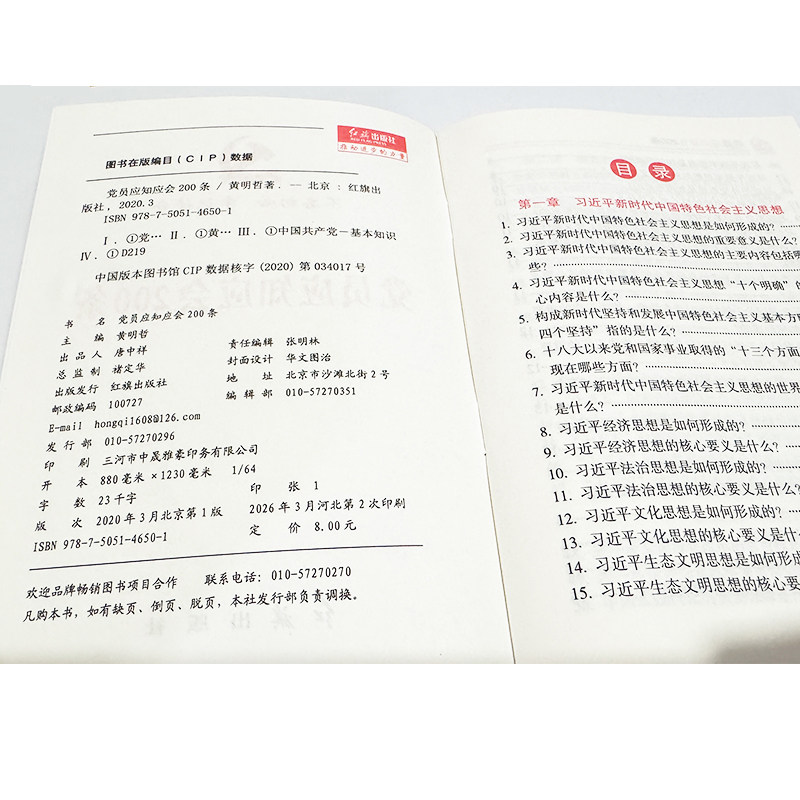 红旗出版社
RED FLAG PRESS
推动进步的力量
图书在版编目(CIP)数据
党员应知应会200条 / 黄明哲著. -- 北京 : 红旗出
版社, 2020.3
ISBN 978-7-5051-4650-1
Ⅰ. ①党… Ⅱ. ①黄… Ⅲ. ①中国共产党-基本知识
Ⅳ. ①D219
中国版本图书馆CIP数据核字(2020)第034017号
书 名 党员应知应会200条
主 编 黄明哲
出 品 人 唐中祥 责任编辑 张明林
总 监 制 褚定华 封面设计 华文图治
出版发行 红旗出版社 地 址 北京市沙滩北街2号
邮政编码 100727 编 辑 部 010-57270351
E-mail hongqi1608@126.com
发 行 部 010-57270296
印 刷 三河市中晟雅豪印务有限公司
开 本 880毫米×1230毫米 1/64
字 数 23千字 印 张 1
版 次 2020年3月北京第1版 2026年3月河北第2次印刷
ISBN 978-7-5051-4650-1 定 价 8.00元
欢迎品牌畅销图书项目合作 联系电话: 010-57270270
凡购本书, 如有缺页、倒页、脱页, 本社发行部负责调换。
目录
第一章 习近平新时代中国特色社会主义思想
1. 习近平新时代中国特色社会主义思想是如何形成的?
2. 习近平新时代中国特色社会主义思想的重要意义是什么?
3. 习近平新时代中国特色社会主义思想的主要内容包括哪
些?
4. 习近平新时代中国特色社会主义思想“十个明确”的
心内容是什么?
5. 构成新时代坚持和发展中国特色社会主义基本方
四个坚持”指的是什么?
6. 十八大以来党和国家事业取得的“十三个方面
现在哪些方面?
7. 习近平新时代中国特色社会主义思想的世界
是什么?
8. 习近平经济思想是如何形成的?
9. 习近平经济思想的核心要义是什么?
10. 习近平法治思想是如何形成的?
11. 习近平法治思想的核心要义是什么?
12. 习近平文化思想是如何形成的?
13. 习近平文化思想的核心要义是什
14. 习近平生态文明思想是如何形
15. 习近平生态文明思想的核心要